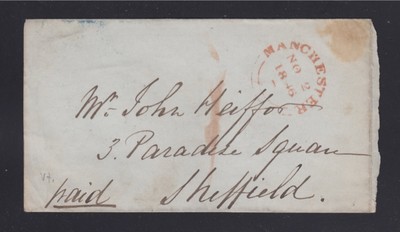 MANCHESTER
NO 2
184
Mr. John Heiffor
3. Paradise Square
paid Sheffield.